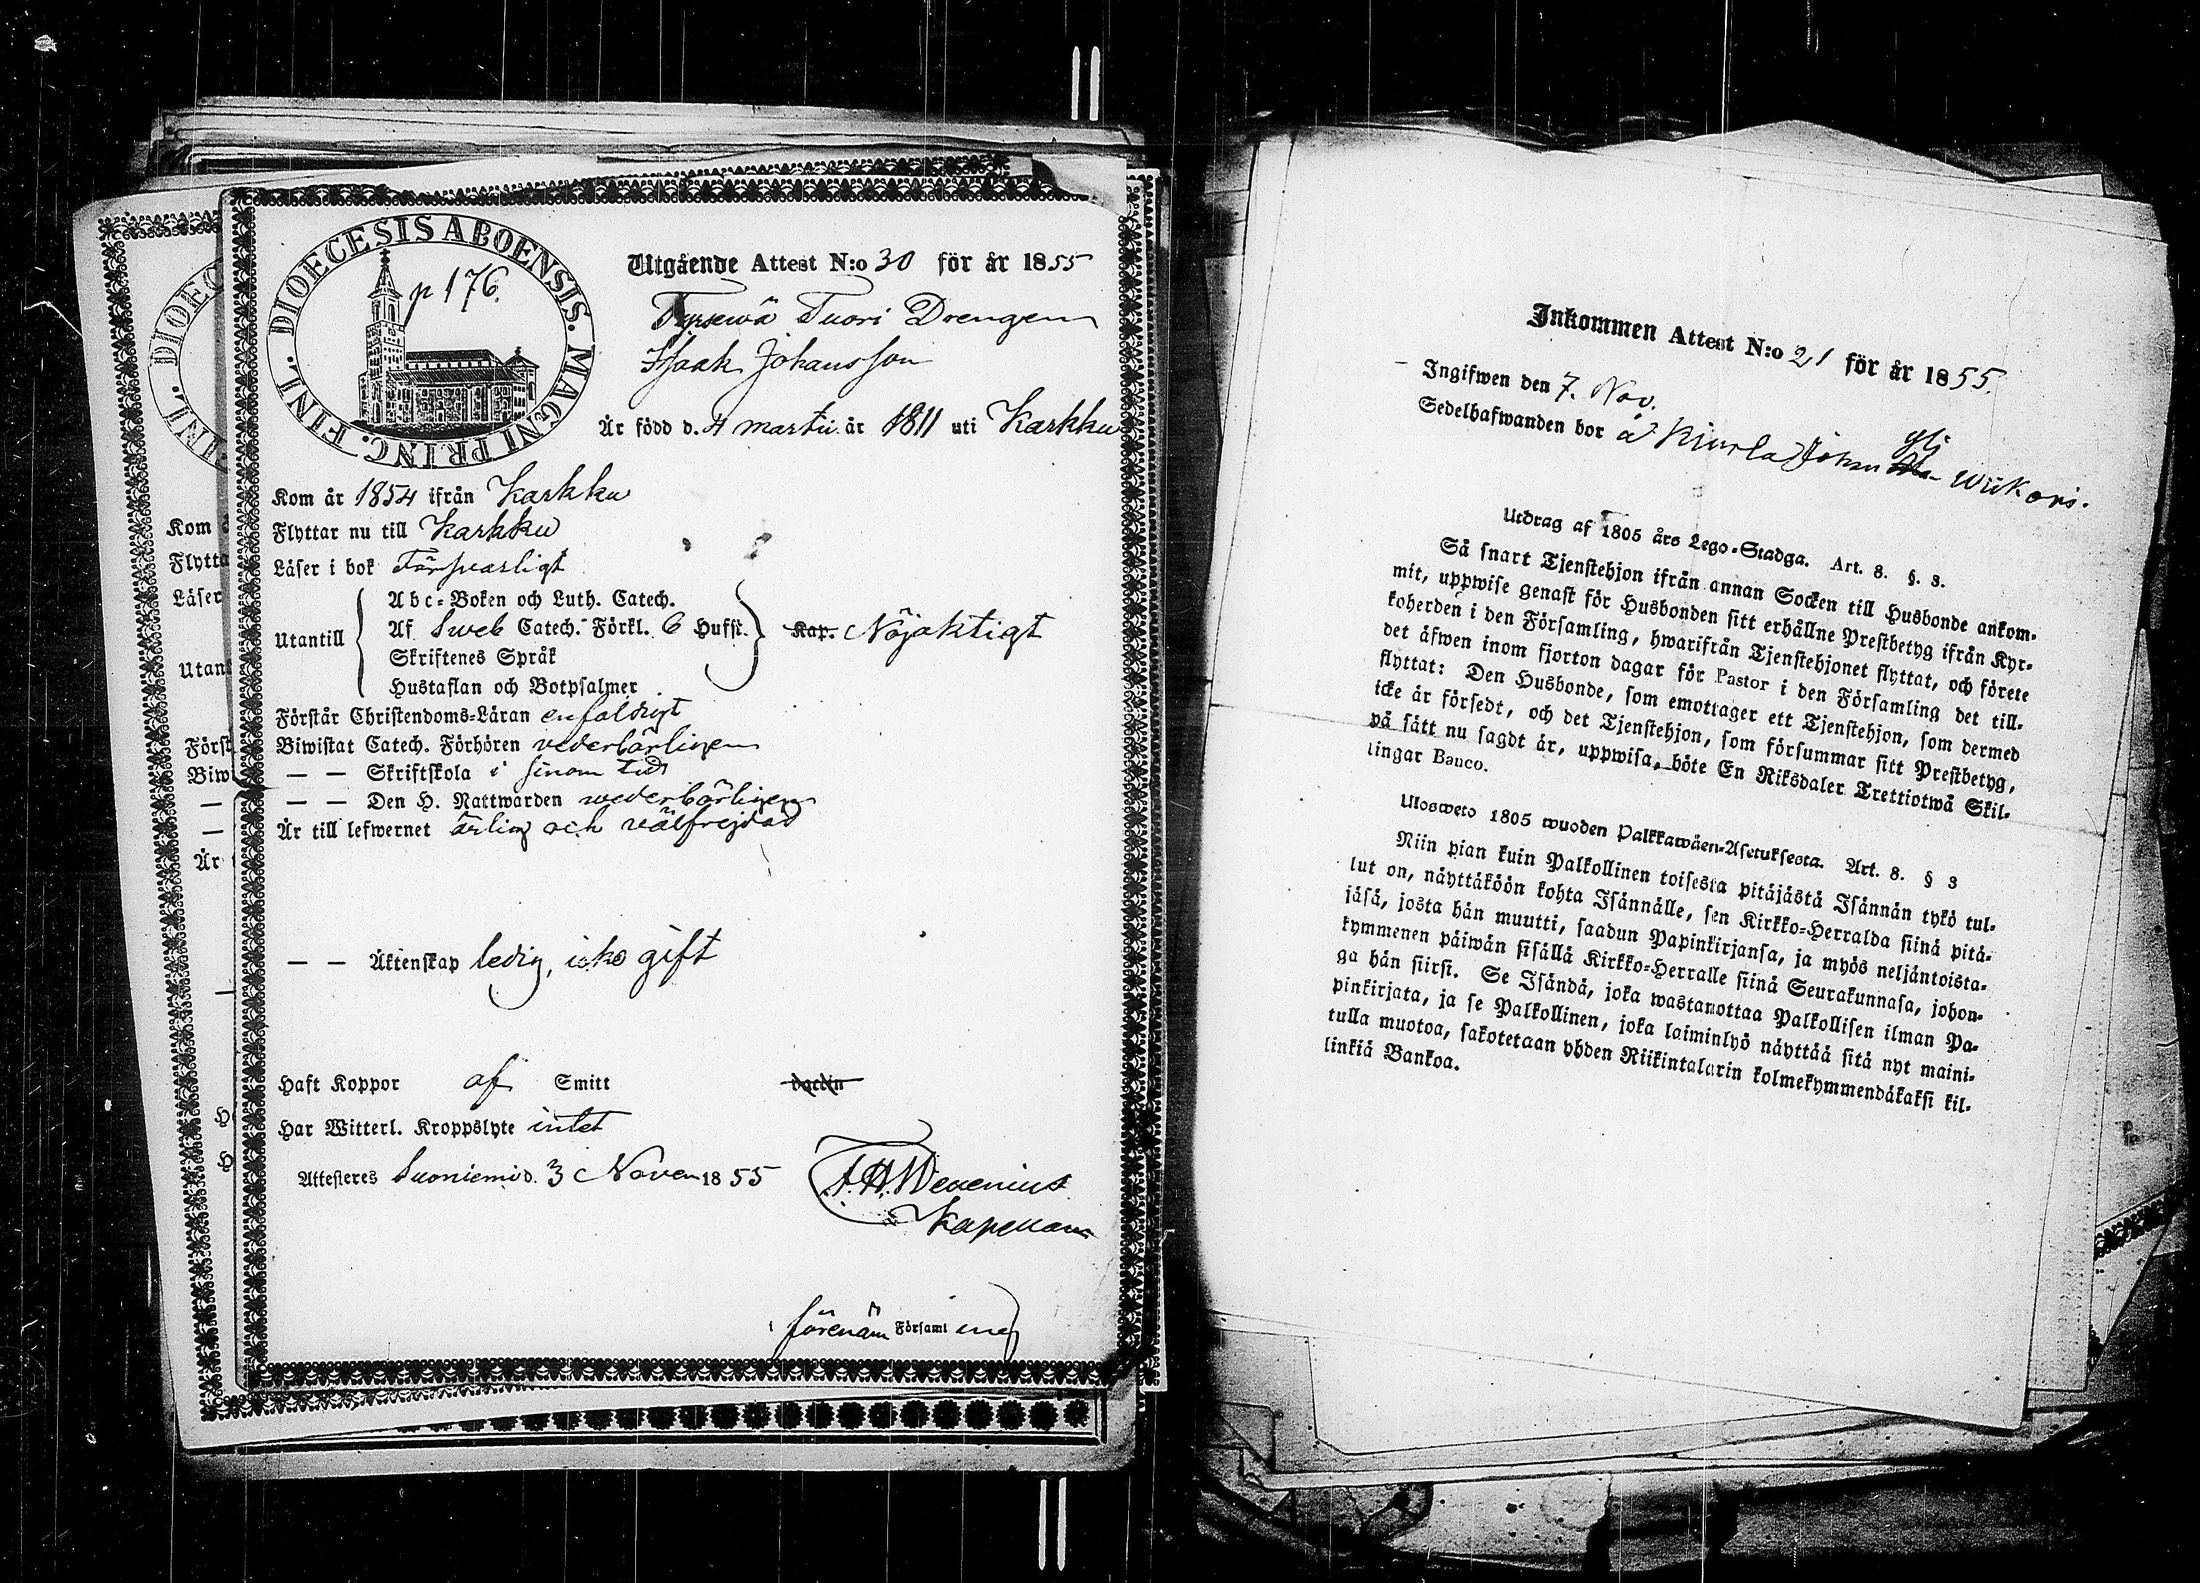 DIOECESIS ABOENSIS. MAGNI PRINC. FINL.
p 176.
Utgående Attest N:o 30 för år 1855
Tyrsewä Tuori Drengen
Isaak Johansson
Är född d. 4 martii år 1811 uti Karkku
Kom år 1854 ifrån Karkku
Flyttar nu till Karkku
Läser i bok Försvarligt
Utantill
Abc-Boken och Luth. Catech.
Af Sweb Catech. Förkl. 6 Hufst.
Skriftenes Språk
Hustaflan och Botpsalmer
Kap. Nöjaktigt
Förstår Christendoms-Läran enfaldigt
Biwistat Catech. Förhören vederbörligen
— — Skriftskola i sinom tid
— — Den H. Nattwarden wederbörligen
Är till lefwernet ärlig och välfrejdad
— — Äktenskap ledig, icke gift
Haft Koppor af Smitt vaccin
Har Witterl. Kroppslyte intet
Attesteres Suoniemi d. 3 Novem 1855
Kapellan
i förenäm Församl ing
DIOEC
INI.
Kom
Flytta
Läser
Utant
Först
Biw
—
—
Är
—
H
H
Inkommen Attest N:o 21 för år 1855.
Ingifwen den 7. Nov.
Sedelhafwanden bor å Kiurla Johan Yli Wiikari.
Utdrag af 1805 års Lego-Stadga. Art. 8. §. 3.
Så snart Tjenstehjon ifrån annan Socken till Husbonde ankom-
mit, uppwise genast för Husbonden sitt erhållne Prestbetyg ifrån Kyr-
koherden i den Församling, hwarifrån Tjenstehjonet flyttat, och förete
det äfwen inom fjorton dagar för Pastor i den Församling det till-
flyttat: Den Husbonde, som emottager ett Tjenstehjon, som dermed
icke är försedt, och det Tjenstehjon, som försummar sitt Prestbetyg,
på sätt nu sagdt är, uppwisa, böte En Riksdaler Trettiotwå Skil-
lingar Banco.
Ulosweto 1805 wuoden Palkkawäen-Asetuksesta. Art. 8. § 3
Niin pian kuin Palkollinen toisesta pitäjästä Isännän tykö tul-
lut on, näyttäköön kohta Isännälle, sen Kirkko-Herralda siinä pitä-
jäsä, josta hän muutti, saadun Papinkirjansa, ja myös neljäntoista-
kymmenen päiwän sisällä Kirkko-Herralle siinä Seurakunnasa, johon-
ga hän siirsi. Se Isändä, joka wastanottaa Palkollisen ilman Pa-
pinkirjata, ja se Palkollinen, joka laiminlyö näyttää sitä nyt maini-
tulla muotoa, sakotetaan yhden Riikintalarin kolmekymmendäkaksi kil-
linkiä Bankoa.